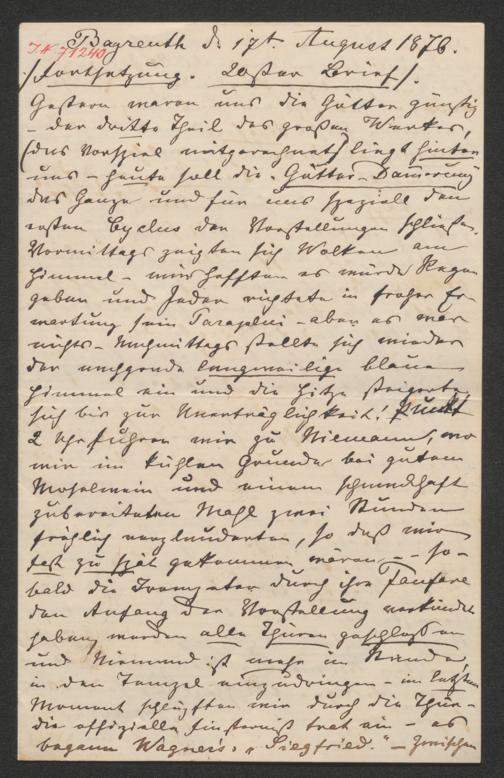 Bayreuth d. 17t. August 1876.
I.N. 71240
/Fortsetzung. 20ster Brief/.
Gestern waren uns die Götter günstig
– der dritte Theil des großen Werkes,
(das Vorspiel mitgerechnet) liegt hinter
uns – heute soll die "Götter-Dämerung"
das Ganze und für uns speziell den
ersten Cyclus der Vorstellungen schließen.
Vormittags zeigten sich Wolken am
Himmel – wir hofften es würde Regen
geben und Jeder richtete in froher Er-
wartung sein Paraplui – aber es war
nichts – Nachmittags stellte sich wieder
der langweilige blaue
Himmel ein und die Hitze steigerte
sich bis zur Unerträglichkeit! Punkt
2 Uhr fuhren wir zu Niemann, wo
wir im kühlen Grunde bei gutem
Moselwein und einem schmackhaft
zubereiteten Mahl zwei Stunden
fröhlich verplauderten, so daß wir
fast zu spät gekommen wären – – so-
bald die Trompeter durch ihre Fanfare
den Anfang der Vorstellung verkündet
haben, werden alle Thüren geschlossen
und Niemand ist mehr im Stande,
in den Tempel einzudringen – im letzten
Moment schlüpften wir durch die Thür –
die offizielle Finsterniß trat ein – es
begann Wagner's "Siegfried." – Zwischen